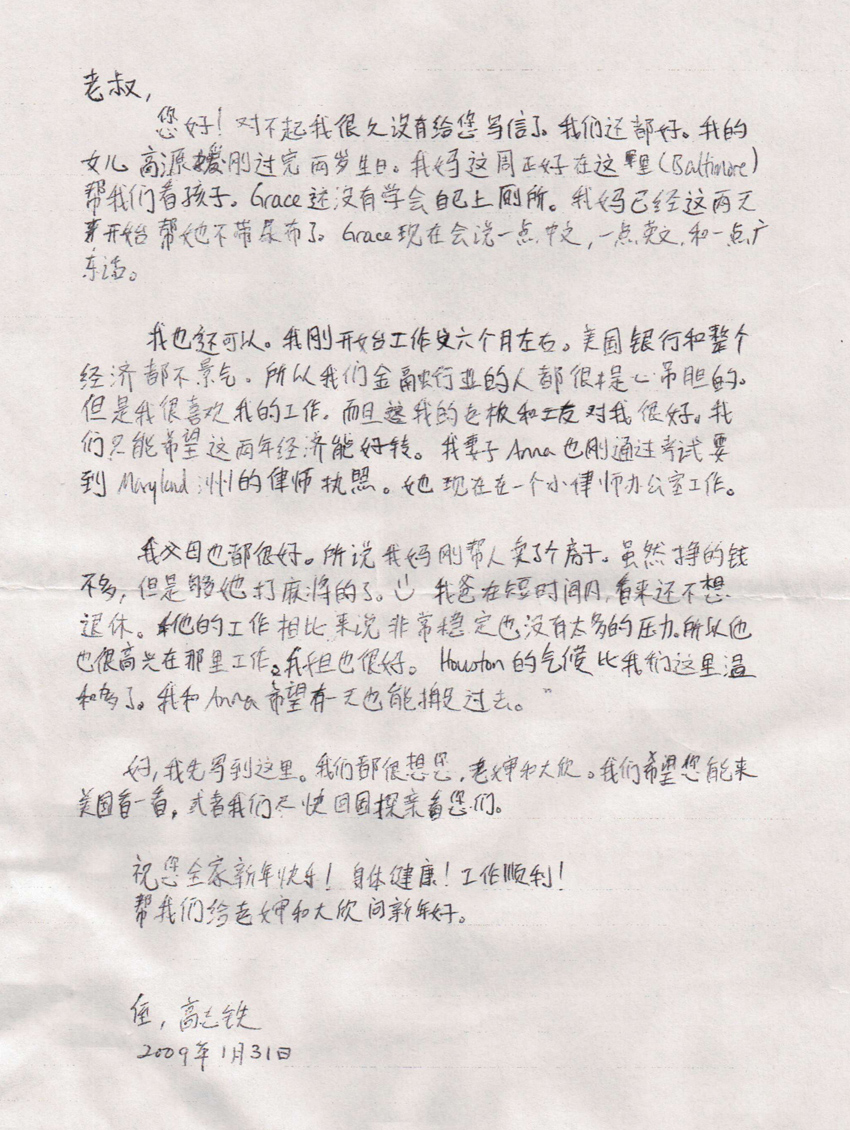 老叔，
您好！对不起我很久没有给您写信了。我们还都好。我的
女儿 高源媛刚过完两岁生日。我妈这周正好在这里（Baltimore）
帮我们看孩子。Grace还没有学会自己上厕所。我妈已经这两天
开始帮她不带尿布了。Grace现在会说一点中文，一点英文，和一点广
东话。
我也还可以。我刚开始工作六个月左右。美国银行和整个
经济都不景气。所以我们金融行业的人都很提心吊胆的。
但是我很喜欢我的工作。而且我的老板和工友对我很好。我
们只能希望这两年经济能好转。我妻子Anna也刚通过考试要
到Maryland洲的律师执照。她现在在一个小律师办公室工作。
我父母也都很好。所说我妈刚帮人卖了个房子。虽然挣的钱
不多，但是够她打麻将的了。我爸在短时间内，看来还不想
退休。他的工作相比来说非常稳定也没有太多的压力。所以他
也很高兴在那里工作。我姐也很好。Houston的气候比我们这里温
和多了。我和Anna希望有一天也能搬过去。
好，我先写到这里。我们都很想您，老婶和大欣。我们希望您能来
美国看一看，或者我们尽快回国探亲看您们。
祝您全家新年快乐！身体健康！工作顺利！
帮我们给老婶和大欣问新年好。
侄，高志铁
2009年1月31日